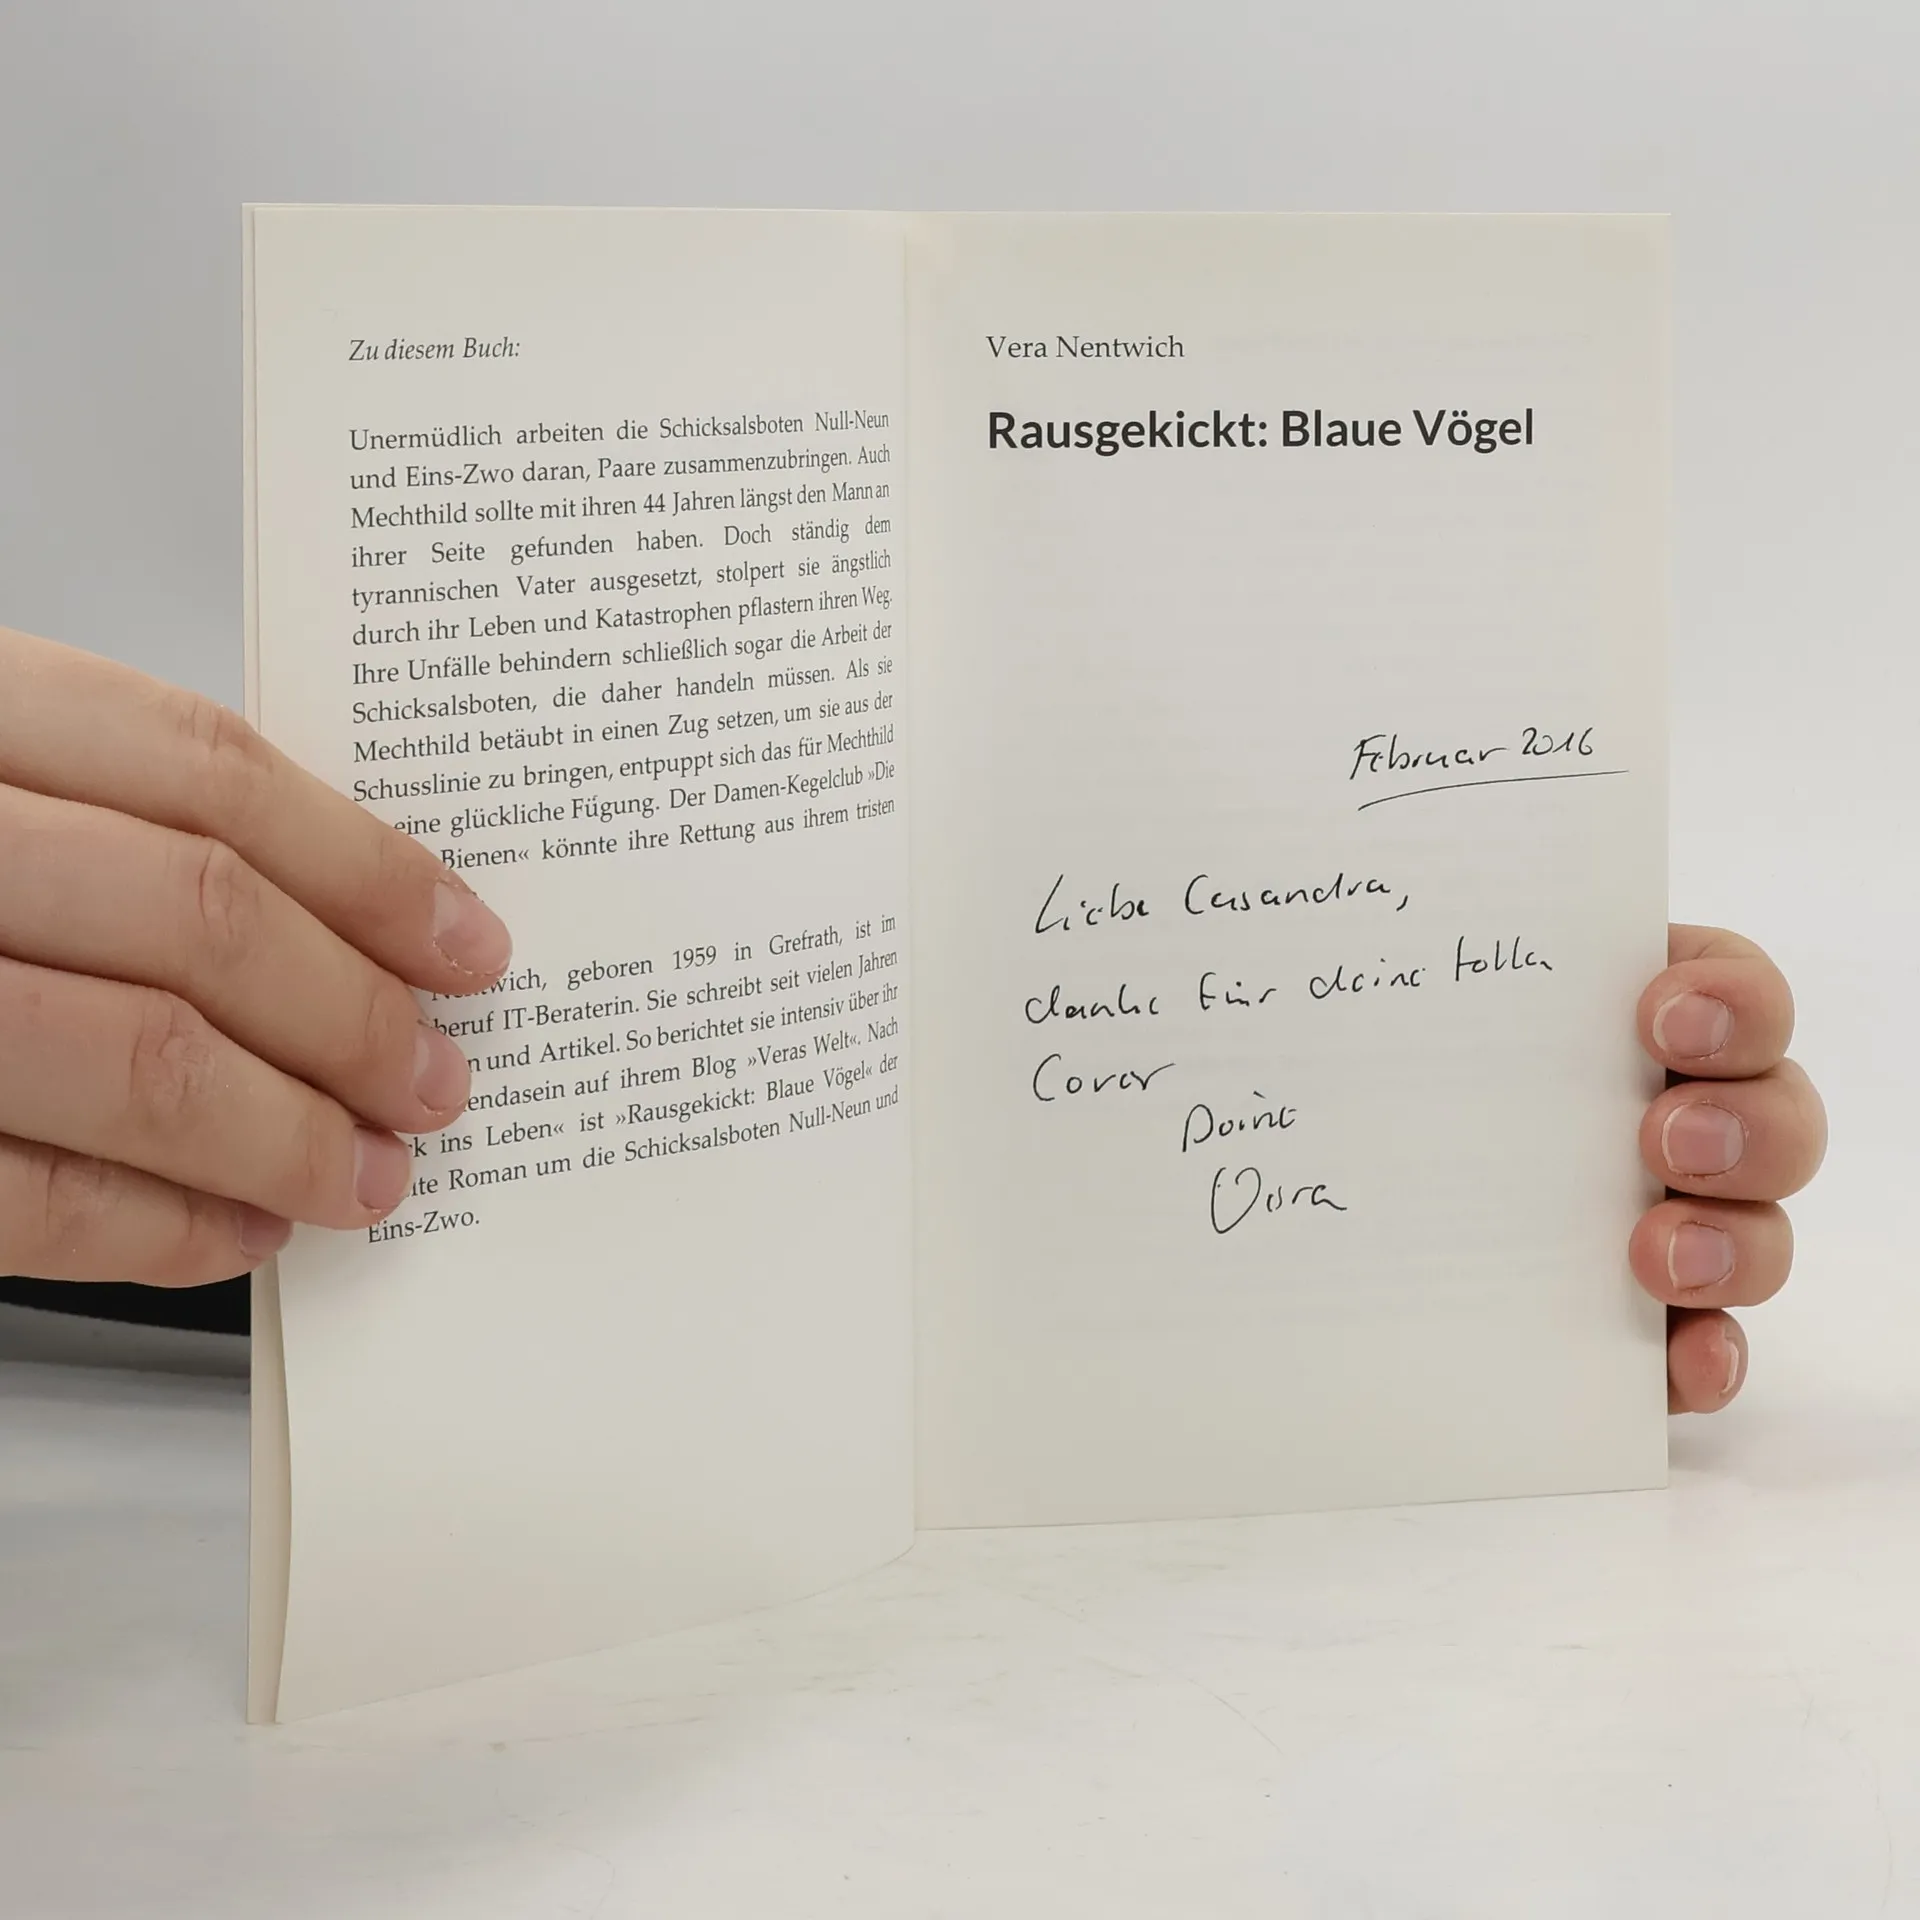 Zu diesem Buch:
Unermüdlich arbeiten die Schicksalsboten Null-Neun
und Eins-Zwo daran, Paare zusammenzubringen. Auch
Mechthild sollte mit ihren 44 Jahren längst den Mann an
ihrer Seite gefunden haben. Doch ständig dem
tyrannischen Vater ausgesetzt, stolpert sie ängstlich
durch ihr Leben und Katastrophen pflastern ihren Weg.
Ihre Unfälle behindern schließlich sogar die Arbeit der
Schicksalsboten, die daher handeln müssen. Als sie
Mechthild betäubt in einen Zug setzen, um sie aus der
Schusslinie zu bringen, entpuppt sich das für Mechthild
eine glückliche Fügung. Der Damen-Kegelclub »Die
Bienen« könnte ihre Rettung aus ihrem tristen
wich, geboren 1959 in Grefrath, ist im
beruf IT-Beraterin. Sie schreibt seit vielen Jahren
n und Artikel. So berichtet sie intensiv über ihr
endasein auf ihrem Blog »Veras Welt«. Nach
k ins Leben« ist »Rausgekickt: Blaue Vögel« der
ite Roman um die Schicksalsboten Null-Neun und
Eins-Zwo.
Vera Nentwich
Rausgekickt: Blaue Vögel
Februar 2016
Liebe Casandra,
danke für deine tollen
Cover
Deine
Vera